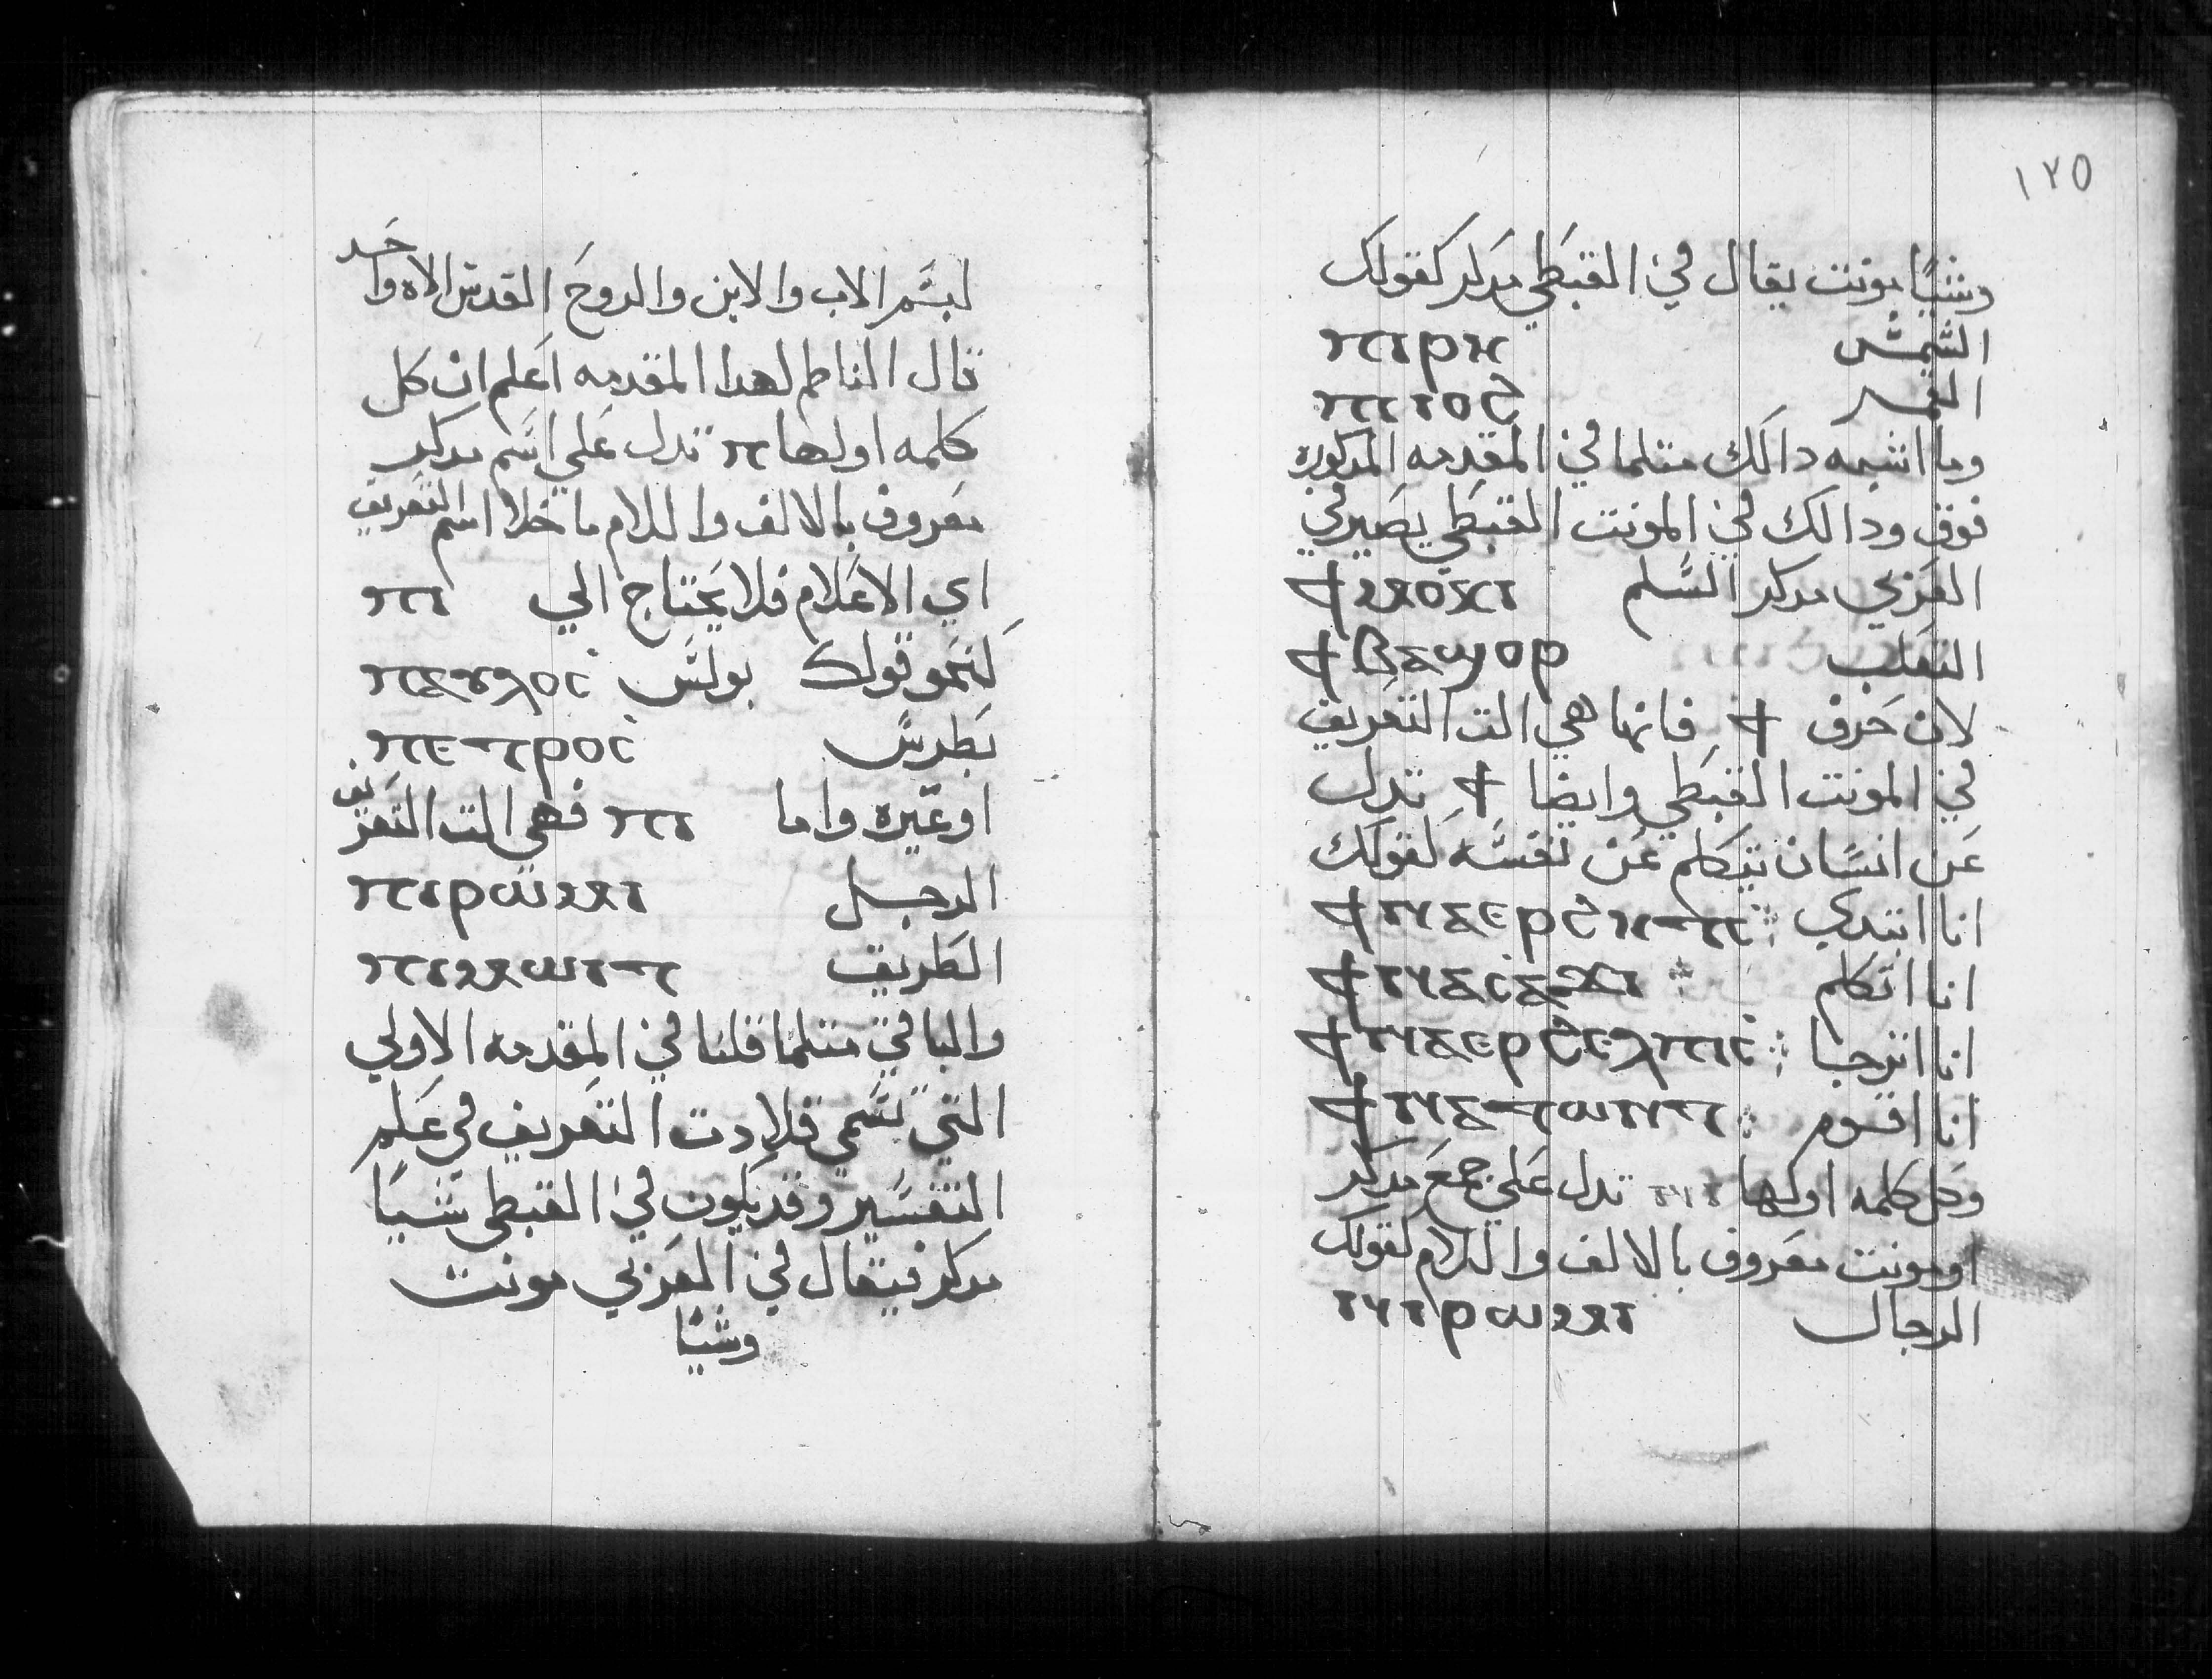 لبسم الاب والابن والروح القدس الاه واحد
قال الناظم لهدا المقدمه اعلم ان كل
كلمه اولها ⲡ تدل علي اسم مدكر
معروف بالالف واللام ما خلا اسم التعريف
اي الاعلام فلا يحتاج الي ⲡⲓ
كنحو قولك بولس ⲡⲁⲩⲗⲟⲥ
بطرس ⲡⲉⲧⲣⲟⲥ
او غيره واما ⲡⲓ فهي الت التعريف
الرجل ⲡⲓⲣⲱⲙⲓ
الطريق ⲡⲓⲙⲱⲓⲧ
والباقي متلما قلنا في المقدمه الاولي
التي تسمي قلادت التعريف في علم
التفسير وقد يكون في القبطي شيا
مدكر فيقال في العربي مونت
وشيا
١٢٥
وشيا مونت يقال في القبطي مدكر كقولك
الشمس ⲡⲓⲣⲏ
القمر ⲡⲓⲓⲟϩ
وما اشبه دالك متلما في المقدمه المدكوره
فوق ودالك في المونت القبطي يصير في
العربي مدكر السلم ϯⲙⲟⲩⲕⲓ
التعلب ϯⲃⲁϣⲟⲣ
لان حرف ϯ فانها هي الت التعريف
في المونت القبطي وايضا ϯ تدل
عن انسان يتكلم عن نفسه كقولك
انا ابتدي ϯⲛⲁⲉⲣϩⲏⲧⲥ
انا اتكلم ϯⲛⲁⲥⲁϫⲓ
انا اترجا ϯⲛⲁⲉⲣϩⲉⲗⲡⲓⲥ
انا اقوم ϯⲛⲁⲧⲱⲛⲧ
وكل كلمه اولها ⲛⲓ تدل علي جمع مدكر
او مونت معروف بالالف واللام كقولك
الرجال ⲛⲓⲣⲱⲙⲓ